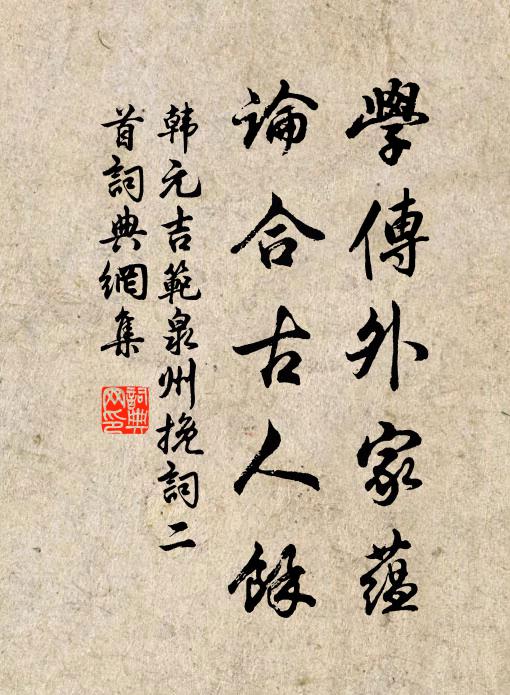 學傳外家蘊
論合古人餘
韩元吉範泉州挽詞二
首詞典網集
詞典
网印